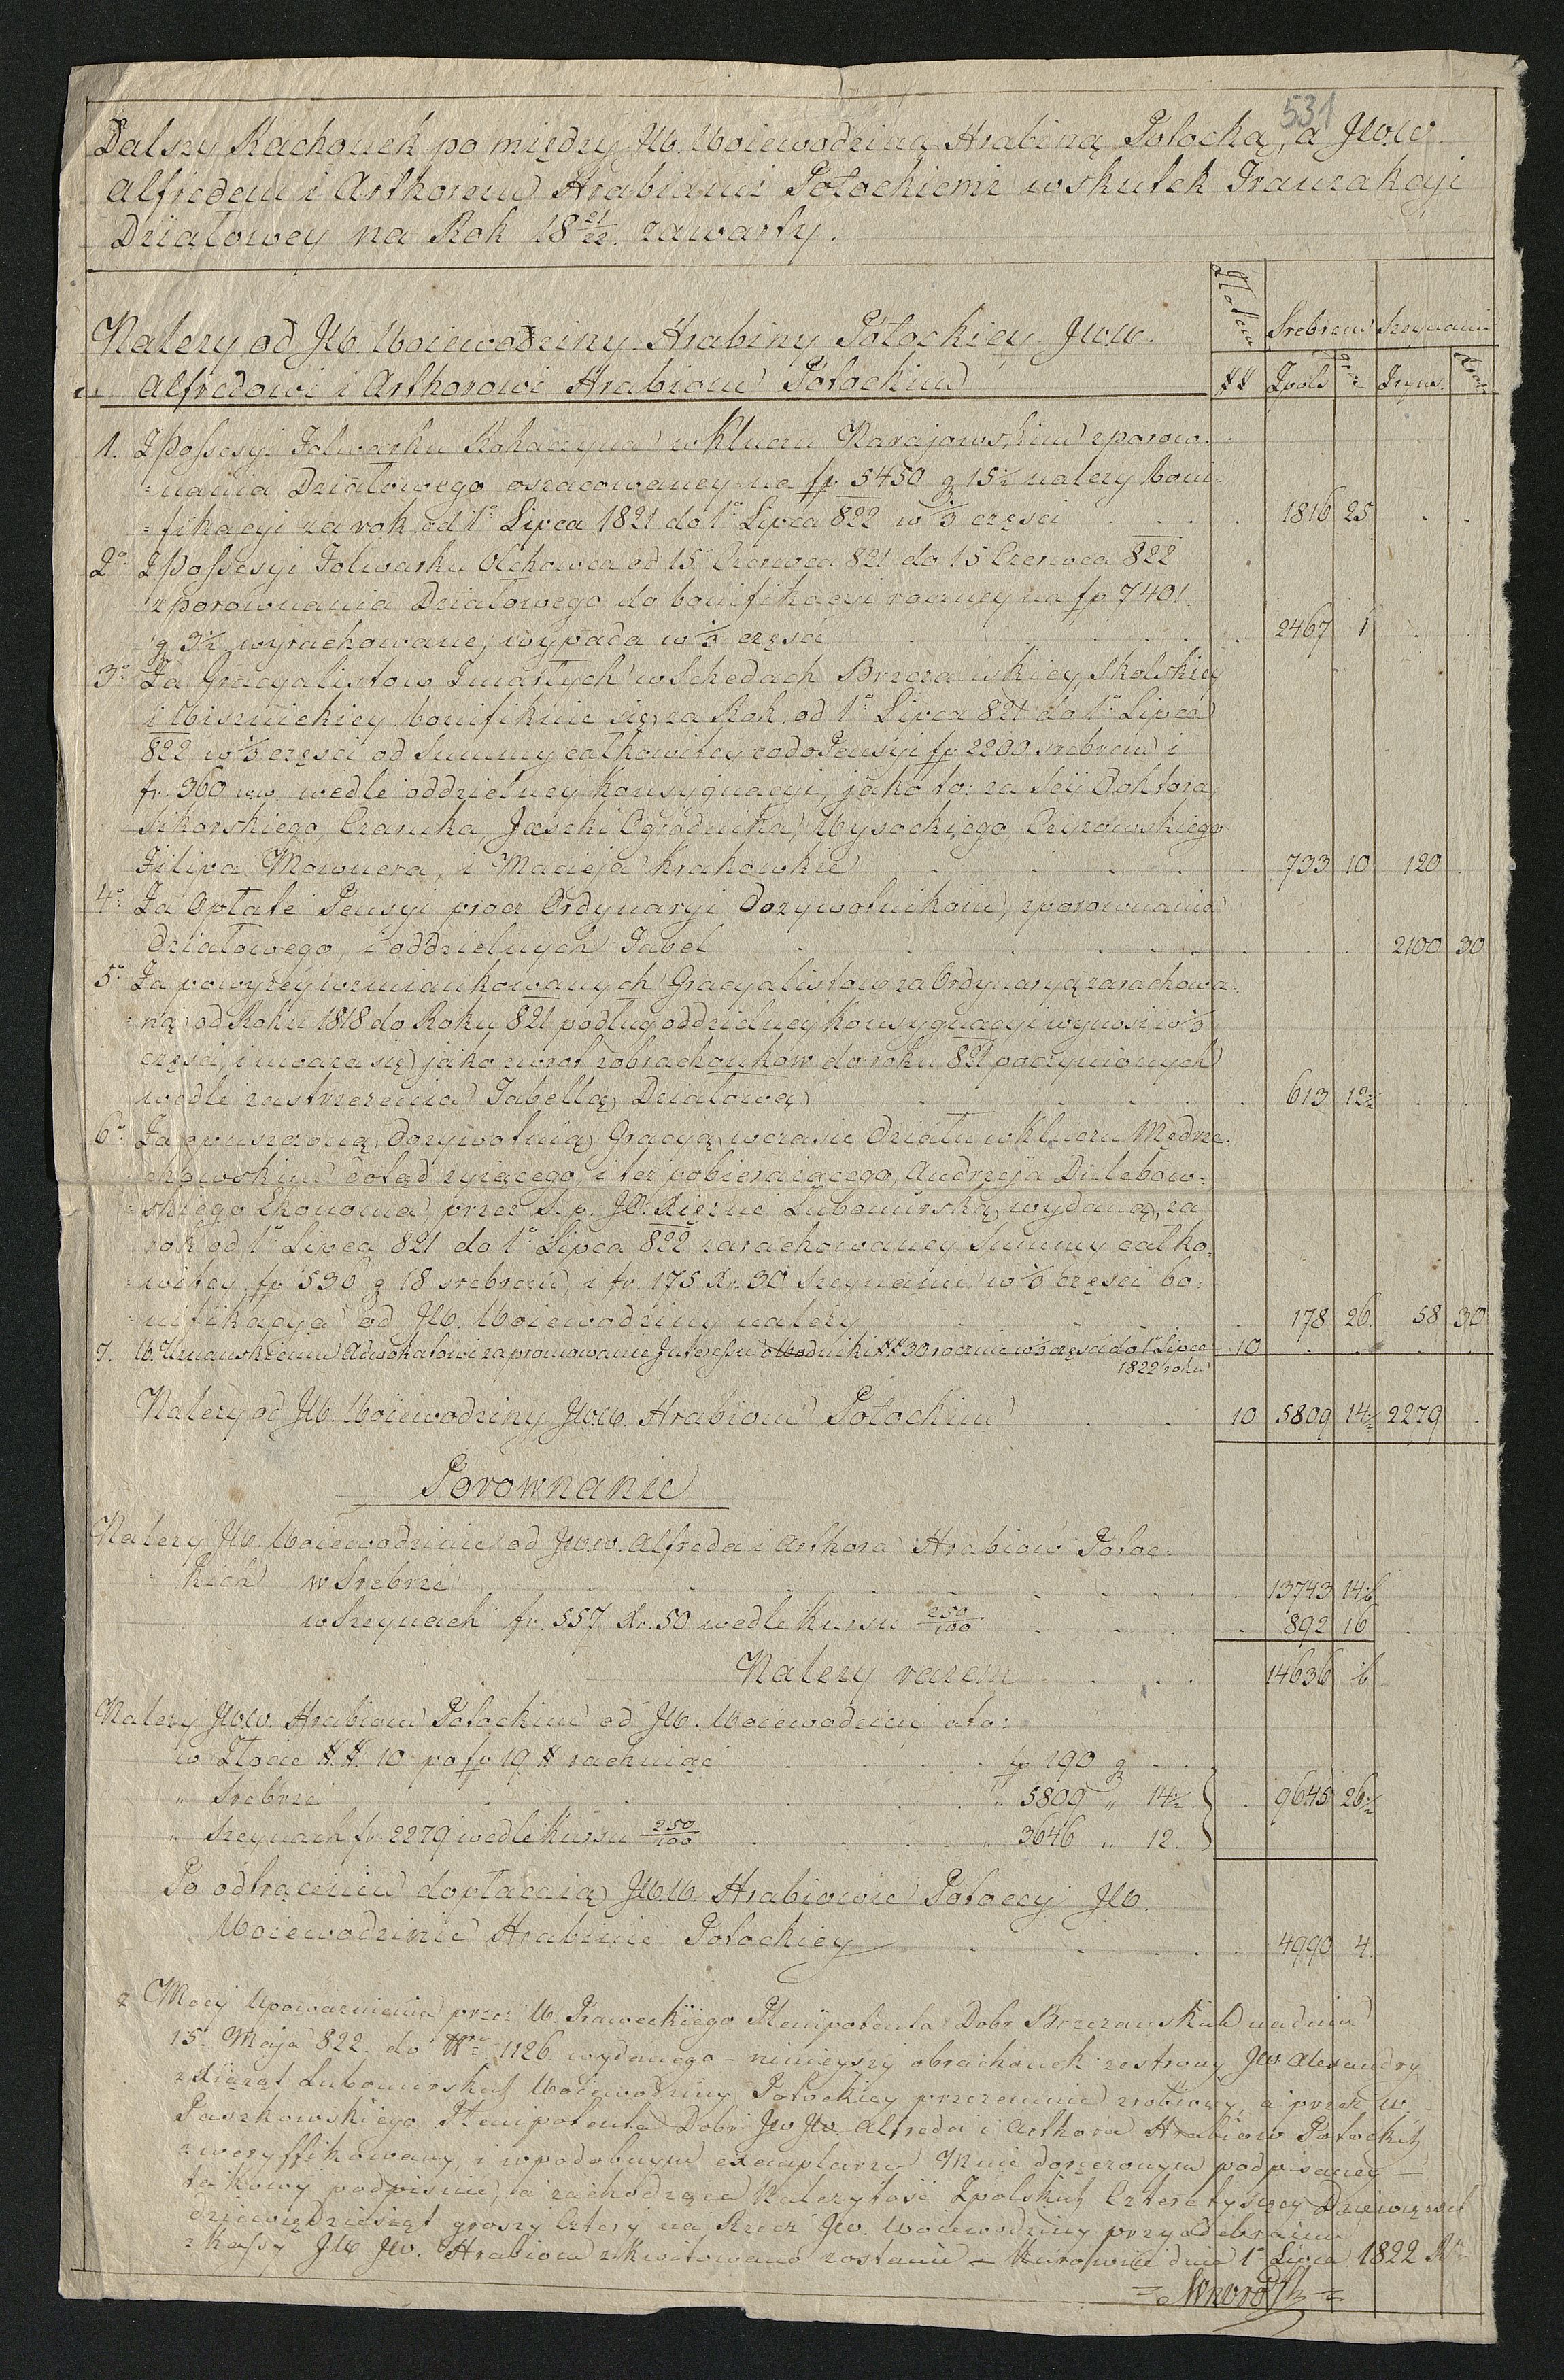 531
Dalszy Rachonek po między JW. Woiewodziną Hrabiną Potocką, a JWW
Alfredem i Arthorem Hrabiami Potockiemi wskutek Tranzakcyi
Działowey na Rok 18 21/22 zawarty.
Złotem Srebrem Szeynami
Nalezy od JW. Woiewodziny Hrabiny Potockiey JWW.
Alfredowi i Arthorowi Hrabiom Potockim
## Zpols gr Zryns. Xr
1. Z Possesyi Folwarku Rohaczyna w Kluczu Narajowskim zporow=
=nania Działowego oszacowaney na fp 5450 g 15½ nalezy boni=
=fikacyi za rok od 1° Lipca 1821 do 1° Lipca 822 w ⅓ części . . . 1816 25 . .
2° Z Possesyi Folwarku Olchowca od 15 Czerwca 821 do 15 Czerwca 822
zporownania Działowego do bonifikacyi roczney na fp 7401.
g 3½ wyrachowane, wypada w ⅓ części . . . 2467 1 . .
3° Za Gracyalistow Zmarłych w Schedach Brzezańskiey, Skolskiey
i Wisznickiey bonifikuie się za Rok od 1° Lipca 821 do 1° Lipca
822 w ⅓ części od Summy całkowitey co do Pensyi fp 2200 srebrem i
fr. 360 ww. wedle oddzielney Konsygnacyi, jako to: za Ićj Doktora
Sikorskiego, Czaneka, Ogrodnika, Wysockiego, Czyzowskiego
Filipa Mownera, i Macieja Krakowkie . . . 733 10 120 .
4° Za Opłate Pensyi procz Ordynaryi Dozywotnikom, zporownania
działowego, i oddzielnych Tabel . . . 2100 30
5° Za powyżey wzmiankowanych Gracyalistow za Ordynaryą zarachowa=
=ną od Roku 1818 do Roku 821 podług oddzielney Konsygnacyi wynosi w ⅓
części, i uwaza się jako zwrot zobrachonkow do roku 821 poczynionych
wedle zastrzezenia Tabellą Działową . . . 613 12½ . .
6° Za opuszczoną dozywotnią Gracyą wczasie Działu w Kluczu Mędrze=
chowskim dotąd zyiącego, i tez pobieraiącego, Andrzeja Dulebow=
=skiego Ekonoma, przez S. p. JO. Xięznę Lubomirską wydaną, za
rok od 1° Lipca 821 do 1° Lipca 822 zarachowaney Summy całko=
=witey fp 536 g 18 srebrem, i fr. 175 Xr. 30 Szeynami w ⅓ części bo=
=nifikacya od JW. Woiewodziny nalezy . . . 178 26 58 30
7. W. Adwokatowi za promowanie Interessu ## 30 rocznie w ⅓ części do 1° Lipca 10 . . .
1822 roku
Nalezy od JW. Woiewodziny JWW. Hrabiom Potockim . . . 10 5809 14½ 2279 .
Porownanie
Nalezy JW. Woiewodzinie od JWW. Alfreda i Arthora Hrabiow Potoc=
kich w Srebrze . . . 13743 14
w Szeynach fr. 557 Xr. 50 wedle Kursu 250/100 . . . 892 16
Nalezy razem . . . 14636
Nalezy JWW. Hrabiom Potockim od JW. Woiewodziny ato:
w Złocie ## 10 po fp 19 # rachuiąc . . . fp 190 g . .
" Srebrze . . . " 5809 " 14½ } . 9645 26½
" Szeynach fr. 2279 wedle Kursu 250/100 . . . " 3646 " 12
Po odtrąceniu dopłacaią JWW. Hrabiowie Potoccy JW.
Woiewodzinie Hrabinie Potockiey . . . 4990 4.
z Mocy Upowaznienia przez W. Plenipotenta Dobr Brzezanskich nadniu
15. Maja 822. do Nro 1126 wydanego – ninieyszy obrachonek zestrony JW Alexandry
z Xiążąt Lubomirskich Woiewodziny Potockiey przezemnie zrobiony, a przez W.
Paszkowskiego Plenipotenta Dobr JW JW Alfreda i Arthora Hrabiow Potockich
zweryffikowany, i wpodobnym exemplarzu Mnie doręczonym podpisaney –
takowy podpisuie, a zachodząca Nalezytość Zpolskich Cztery tysięcy Dziewięćset
dziewięćdziesiąt groszy Cztery na Rzecz JW. Woiewodziny przy odebraniu
z Kassy JW JW. Hrabiow zkwitowano zostanie – Kurowice dnia 1° Lipca 1822 R.